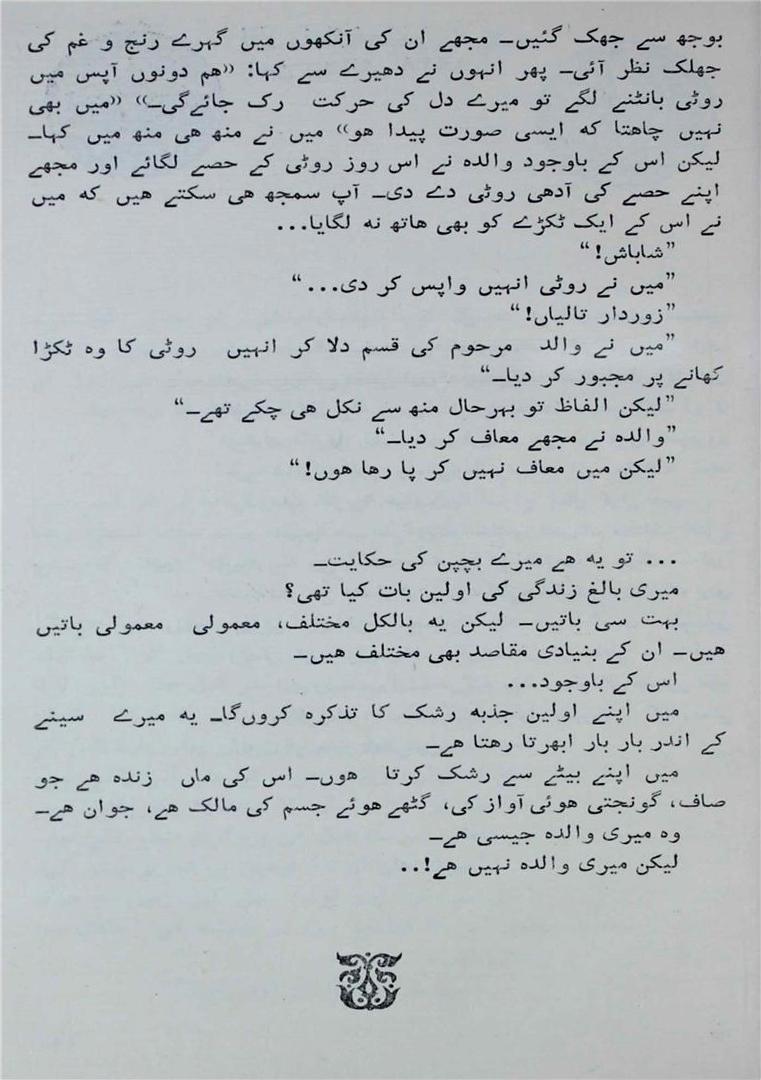 بوجھ سے جھک گئیں۔ مجھے ان کی آنکھوں میں گہرے رنج و غم کی
جھلک نظر آئی۔ پھر انہوں نے دھیرے سے کہا: «هم دونوں آپس میں
روٹی بانٹنے لگے تو میرے دل کی حرکت رک جائےگی۔» «میں بھی
نہیں چاهتا کہ ایسی صورت پیدا هو» میں نے منھ هی منھ میں کہا۔
لیکن اس کے باوجود والدہ نے اس روز روٹی کے حصے لگائے اور مجھے
اپنے حصے کی آدھی روٹی دے دی۔ آپ سمجھ هی سکتے هیں کہ میں
نے اس کے ایک ٹکڑے کو بھی هاتھ نہ لگایا...
”شاباش!“
”میں نے روٹی انہیں واپس کر دی...“
”زوردار تالیاں!“
”میں نے والد مرحوم کی قسم دلا کر انہیں روٹی کا وہ ٹکڑا
کھانے پر مجبور کر دیا۔“
”لیکن الفاظ تو بہرحال منھ سے نکل هی چکے تھے۔“
”والدہ نے مجھے معاف کر دیا۔“
”لیکن میں معاف نہیں کر پا رها هوں!“
... تو یہ هے میرے بچپن کی حکایت۔
میری بالغ زندگی کی اولین بات کیا تھی؟
بہت سی باتیں۔ لیکن یہ بالکل مختلف، معمولی معمولی باتیں
هیں۔ ان کے بنیادی مقاصد بھی مختلف هیں۔
اس کے باوجود...
میں اپنے اولین جذبہ رشک کا تذکرہ کروں‌گا۔ یہ میرے سینے
کے اندر بار بار ابھرتا رهتا هے۔
میں اپنے بیٹے سے رشک کرتا هوں۔ اس کی ماں زندہ هے جو
صاف، گونجتی هوئی آواز کی، گٹھے هوئے جسم کی مالک هے، جوان هے۔
وہ میری والدہ جیسی هے۔
لیکن میری والدہ نہیں هے!..